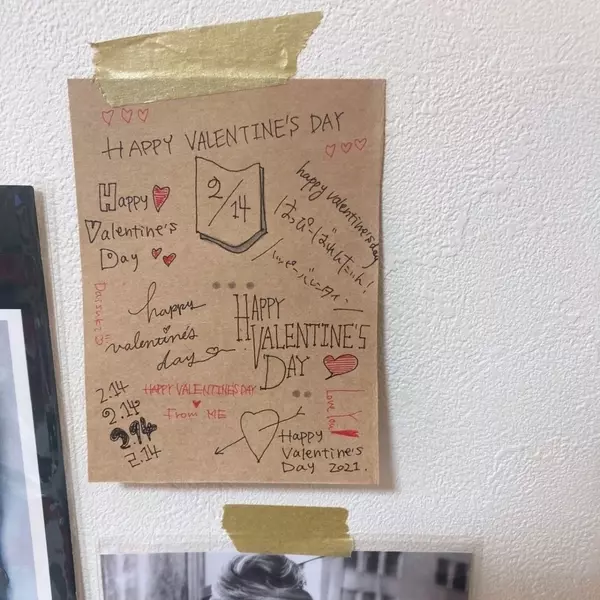 HAPPY VALENTINE'S DAY
2/14
Happy
Valentine's
Day
happy valentine's day
はっぴーばれんたいん!
ハッピーバレンタイン
happy
valentine's
day
HAPPY
VALENTINE'S
DAY
2.14
2.14
2.14
2.14
HAPPY VALENTINE'S DAY
From ME
Love You
Happy
Valentine's
Day 2021.